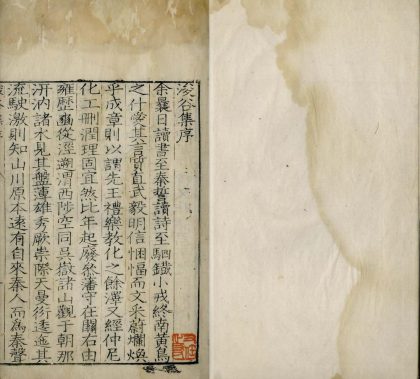 浚谷集序
余曩日讀書至秦誓讀詩至駟鐵小戎終南黃鳥
之什愛其言質直武毅明信悃愊而文采蔚爛煥
乎成章則以謂先王禮樂教化之餘澤又經仲尼
化工刪潤理固宜然比年起廢叅藩守在關右由
雍歷豳從涇遡渭西陟空同吳嶽諸山觀于朝那
汧汭諸水見其盤薄雄秀厥崇際天曼衍逶迤其
流駛激則知山川原不遠有自來秦人而為秦聲